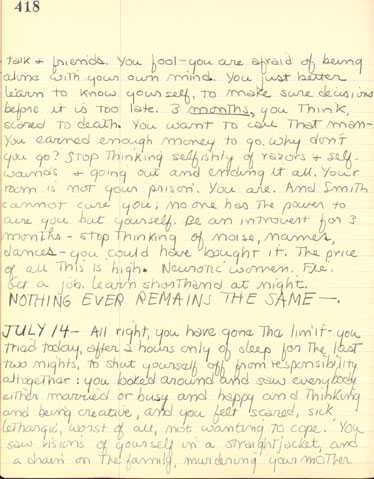 418
talk + friends. You fool - you are afraid of being
alone with your own mind. You just better
learn to know yourself, to make sure decisions
before it is too late. 3 months, you think,
scared to death. You want to call that man -
You earned enough money to go. Why don't
you go? Stop thinking selfishly of razors + self-
wounds + going out and ending it all. Your
room is not your prison. You are. And Smith
cannot cure you; no one has the power to
cure you but yourself. Be an introvert for 3
months - stop thinking of noise, names,
dances - you could have bought it. The price
of all this is high. Neurotic women. Fie.
Get a job. Learn shorthand at night.
NOTHING EVER REMAINS THE SAME —.
JULY 14 - All right, you have gone the limit - you
tried today, after 2 hours only of sleep for the last
two nights, to shut yourself off from responsibility
altogether: you looked around and saw everybody
either married or busy and happy and thinking
and being creative, and you felt scared, sick
lethargic, worst of all, not wanting to cope. You
saw visions of yourself in a straight jacket, and
a drain on the family, murdering your mother